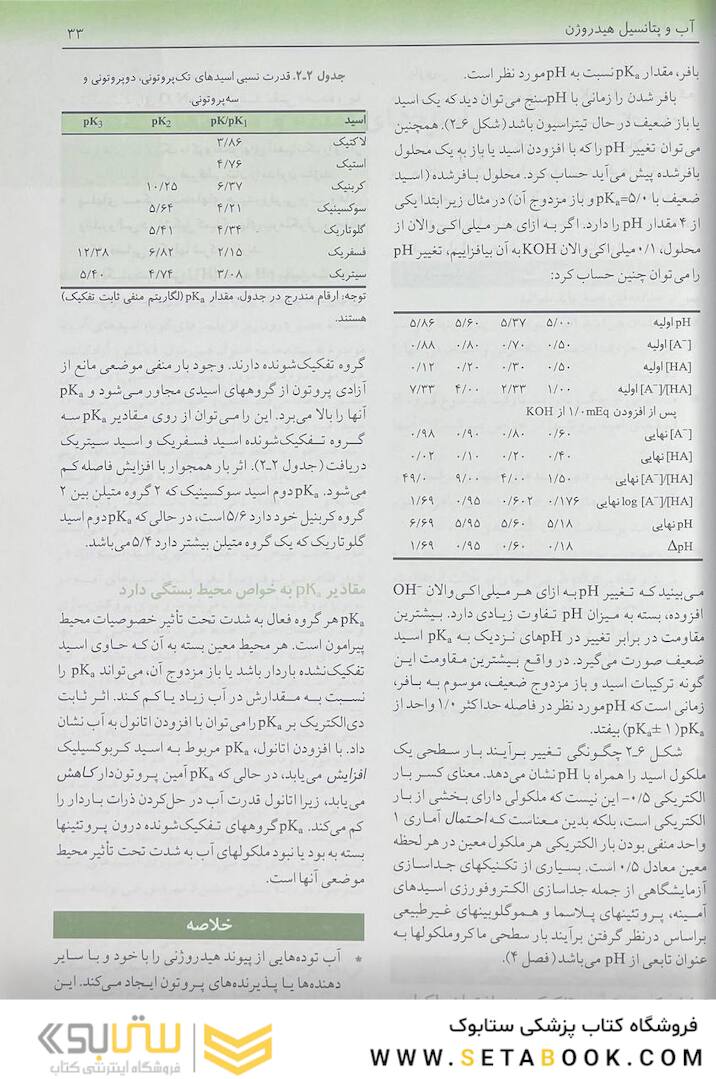 آب و پتانسیل هیدروژن ۳۳
بافر، مقدار pKa نسبت به pH مورد نظر است.
بافر شدن را زمانی با pH سنج می‌توان دید که یک اسید
یا باز ضعیف در حال تیتراسیون باشد (شکل ۶ـ۲). همچنین
می‌توان تغییر pH را که با افزودن اسید یا باز به یک محلول
بافرشده پیش می‌آید حساب کرد. محلول بافرشده (اسید
ضعیف با pKa=۵/۰ و باز مزدوج آن) در مثال زیر ابتدا یکی
از ۴ مقدار pH را دارد. اگر به ازای هر میلی‌اکی‌والان از
محلول، ۰/۱ میلی‌اکی‌والان KOH به آن بیافزاییم، تغییر pH
را می‌توان چنین حساب کرد:
pH اولیه ۵/۰۰ ۵/۳۷ ۵/۶۰ ۵/۸۶
[A⁻] اولیه ۰/۵۰ ۰/۷۰ ۰/۸۰ ۰/۸۸
[HA] اولیه ۰/۵۰ ۰/۳۰ ۰/۲۰ ۰/۱۲
[A⁻]/[HA] اولیه ۱/۰۰ ۲/۳۳ ۴/۰۰ ۷/۳۳
پس از افزودن ۰/۱mEq از KOH
[A⁻] نهایی ۰/۶۰ ۰/۸۰ ۰/۹۰ ۰/۹۸
[HA] نهایی ۰/۴۰ ۰/۲۰ ۰/۱۰ ۰/۰۲
[A⁻]/[HA] نهایی ۱/۵۰ ۴/۰۰ ۹/۰۰ ۴۹/۰
log [A⁻]/[HA] نهایی ۰/۱۷۶ ۰/۶۰۲ ۰/۹۵ ۱/۶۹
pH نهایی ۵/۱۸ ۵/۶۰ ۵/۹۵ ۶/۶۹
ΔpH ۰/۱۸ ۰/۶۰ ۰/۹۵ ۱/۶۹
می‌بینید که تغییر pH به ازای هر میلی‌اکی‌والان OH⁻
افزوده، بسته به میزان pH تفاوت زیادی دارد. بیشترین
مقاومت در برابر تغییر در pHهای نزدیک به pKa اسید
ضعیف صورت می‌گیرد. در واقع بیشترین مقاومت این
گونه ترکیبات اسید و باز مزدوج ضعیف، موسوم به بافر،
زمانی است که pH مورد نظر در فاصله حداکثر ۱/۰ واحد از
pKa (pKa±۱) بیفتد.
شکل ۶ـ۲ چگونگی تغییر برآیند بار سطحی یک
ملکول اسید را همراه با pH نشان می‌دهد. معنای کسر بار
الکتریکی ۰/۵- این نیست که ملکولی دارای بخشی از بار
الکتریکی است، بلکه بدین معناست که احتمال آماری ۱
واحد منفی بودن بار الکتریکی هر ملکول معین در هر لحظه
معین معادل ۰/۵ است. بسیاری از تکنیکهای جداسازی
آزمایشگاهی از جمله جداسازی الکتروفورزی اسیدهای
آمینه، پروتئینهای پلاسما و هموگلوبینهای غیرطبیعی
براساس درنظر گرفتن برآیند بار سطحی ماکروملکولها به
عنوان تابعی از pH می‌باشد (فصل ۴).
جدول ۲ـ۲. قدرت نسبی اسیدهای تک‌پروتونی، دوپروتونی و
سه‌پروتونی.
اسید pK/pK₁ pK₂ pK₃
لاکتیک ۳/۸۶
استیک ۴/۷۶
کربنیک ۶/۳۷ ۱۰/۲۵
سوکسینیک ۴/۲۱ ۵/۶۴
گلوتاریک ۴/۳۴ ۵/۴۱
فسفریک ۲/۱۵ ۶/۸۲ ۱۲/۳۸
سیتریک ۳/۰۸ ۴/۷۴ ۵/۴۰
توجه: ارقام مندرج در جدول، مقدار pKa (لگاریتم منفی ثابت تفکیک)
هستند.
گروه تفکیک‌شونده دارند. وجود بار منفی موضعی مانع از
آزادی پروتون از گروههای اسیدی مجاور می‌شود و pKa
آنها را بالا می‌برد. این را می‌توان از روی مقادیر pKa سه
گروه تفکیک‌شونده اسید فسفریک و اسید سیتریک
دریافت (جدول ۲ـ۲). اثر بار همجوار با افزایش فاصله کم
می‌شود. pKa دوم اسید سوکسینیک که ۲ گروه متیلن بین ۲
گروه کربنیل خود دارد ۵/۶ است، در حالی که pKa دوم اسید
گلوتاریک که یک گروه متیلن بیشتر دارد ۵/۴ می‌باشد.
مقادیر pKa به خواص محیط بستگی دارد
pKa هر گروه فعال به شدت تحت تأثیر خصوصیات محیط
پیرامون است. هر محیط معین بسته به آن که حاوی اسید
تفکیک‌نشده باردار باشد یا باز مزدوج آن، می‌تواند pKa را
نسبت به مقدارش در آب زیاد یا کم کند. اثر ثابت
دی‌الکتریک بر pKa را می‌توان با افزودن اتانول به آب نشان
داد. با افزودن اتانول، pKa مربوط به اسید کربوسیلیک
افزایش می‌یابد، در حالی که pKa آمین پروتون‌دار کاهش
می‌یابد، زیرا اتانول قدرت آب در حل‌کردن ذرات باردار را
کم می‌کند. pKa گروههای تفکیک‌شونده درون پروتئینها
بسته به بود یا نبود ملکولهای آب به شدت تحت تأثیر محیط
موضعی آنها است.
خلاصه
* آب توده‌هایی از پیوند هیدروژنی را با خود و با سایر
دهنده‌ها یا پذیرنده‌های پروتون ایجاد می‌کند. این
فروشگاه کتاب پزشکی ستابوک
WWW.SETABOOK.COM
ستابوک
فروشگاه اینترنتی کتاب